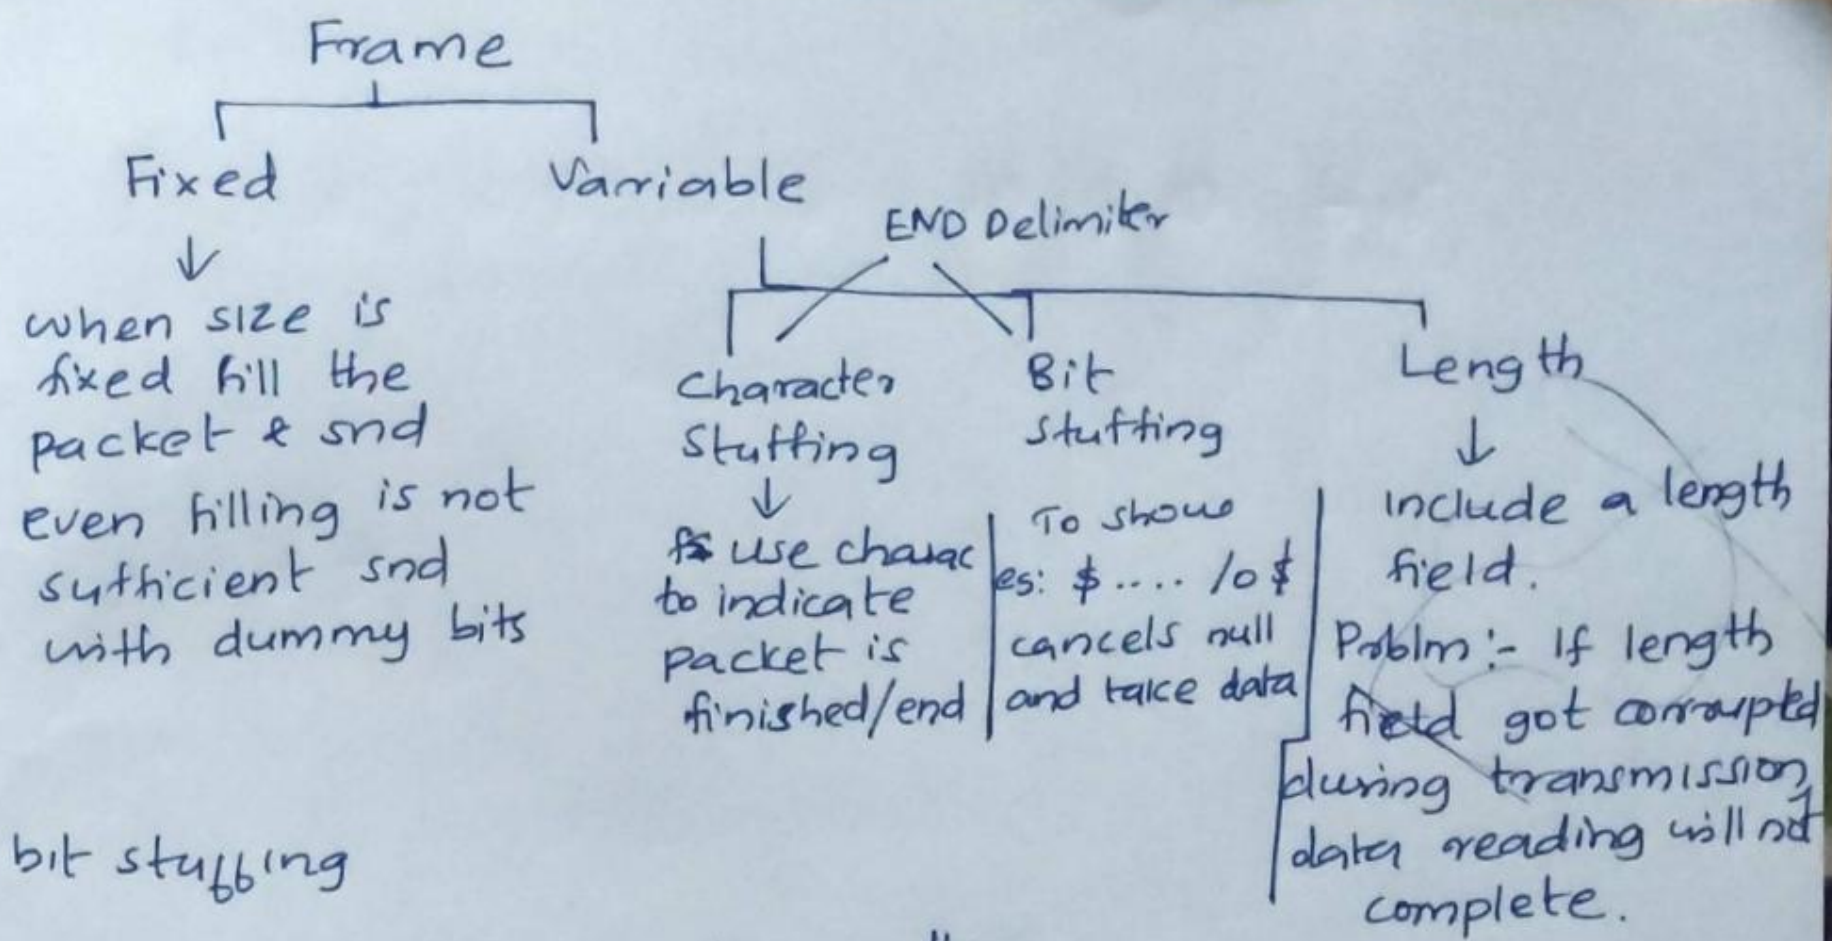 Frame
Fixed
Variable
END Delimiter
when size is
fixed fill the
packet & snd
even filling is not
sufficient snd
with dummy bits
Character
Stuffing
use charac
to indicate
packet is
finished/end
Bit
Stuffing
To show
es: $ .... /o $
cancels null
and take data
Length
include a length
field.
Problm :- If length
field got corrupted
during transmission
data reading will not
complete.
bit stuffing